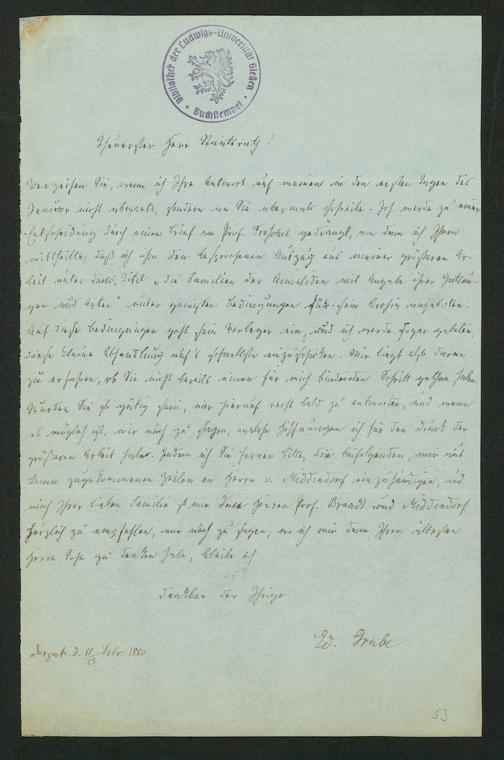 Bibliothek der Ludwigs-Universität Giessen
Buchstempel
Theuerster Herr Staatsrath!
Verzeihen Sie, wenn ich Ihre Antwort auf meinen in den ersten Tagen des
Januar nicht abwarte, sondern an Sie abermals schreibe. Ich werde zu einer
Entscheidung durch einen Brief von Prof. Troschel gedrängt, von dem ich Ihnen
mittheilte, daß ich ihm den besprochenen Auszug aus meiner größeren Ar-
beit unter dem Titel "die Familien der Anneliden mit Angabe ihrer Gattun-
gen und Arten" unter gewissen Bedingungen für sein Archiv angeboten.
Auf diese Bedingungen geht sein Verleger ein, und ich werde sogar gebeten,
diese kleine Abhandlung auf's schnellste einzuschicken. Mir liegt also daran
zu erfahren, ob Sie nicht bereits einen für mich bindenden Schritt gethan haben.
Würden Sie so gütig sein, mir hierauf recht bald zu antworten, und wenn
es möglich ist, mir auch zu sagen, welche Hoffnungen ich für den Druck der
größeren Arbeit habe. Indem ich Sie ferner bitte, die beifolgenden, mir aus
zugekommenen Zeilen an Herrn v. Middendorf einzuhändigen, und
mich Ihrer lieben Familie so wie den Herren Prof. Brandt und Middendorf
herzlich zu empfehlen, mir auch zu sagen, wo ich mir den Ihren ältesten
Herrn Sohn zu denken habe, bleibe ich
dankbar der Ihrige
Ed. Grube
Dorpat d. 11/23 Febr. 1850
53